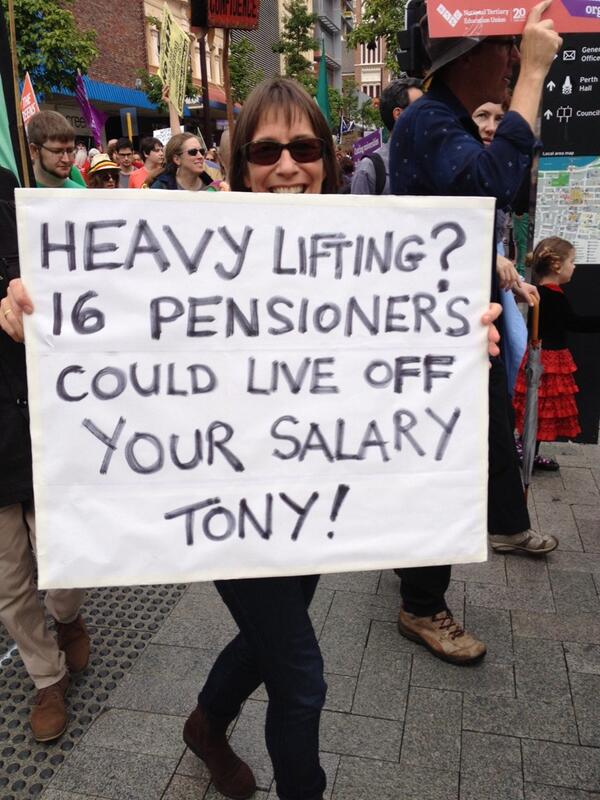 CONFIDENCE
National Tertiary
Education Union
20
org
General
Office
Perth
Council
Local area map
HEAVY LIFTING?
16 PENSIONER'S
COULD LIVE OFF
YOUR SALARY
TONY!